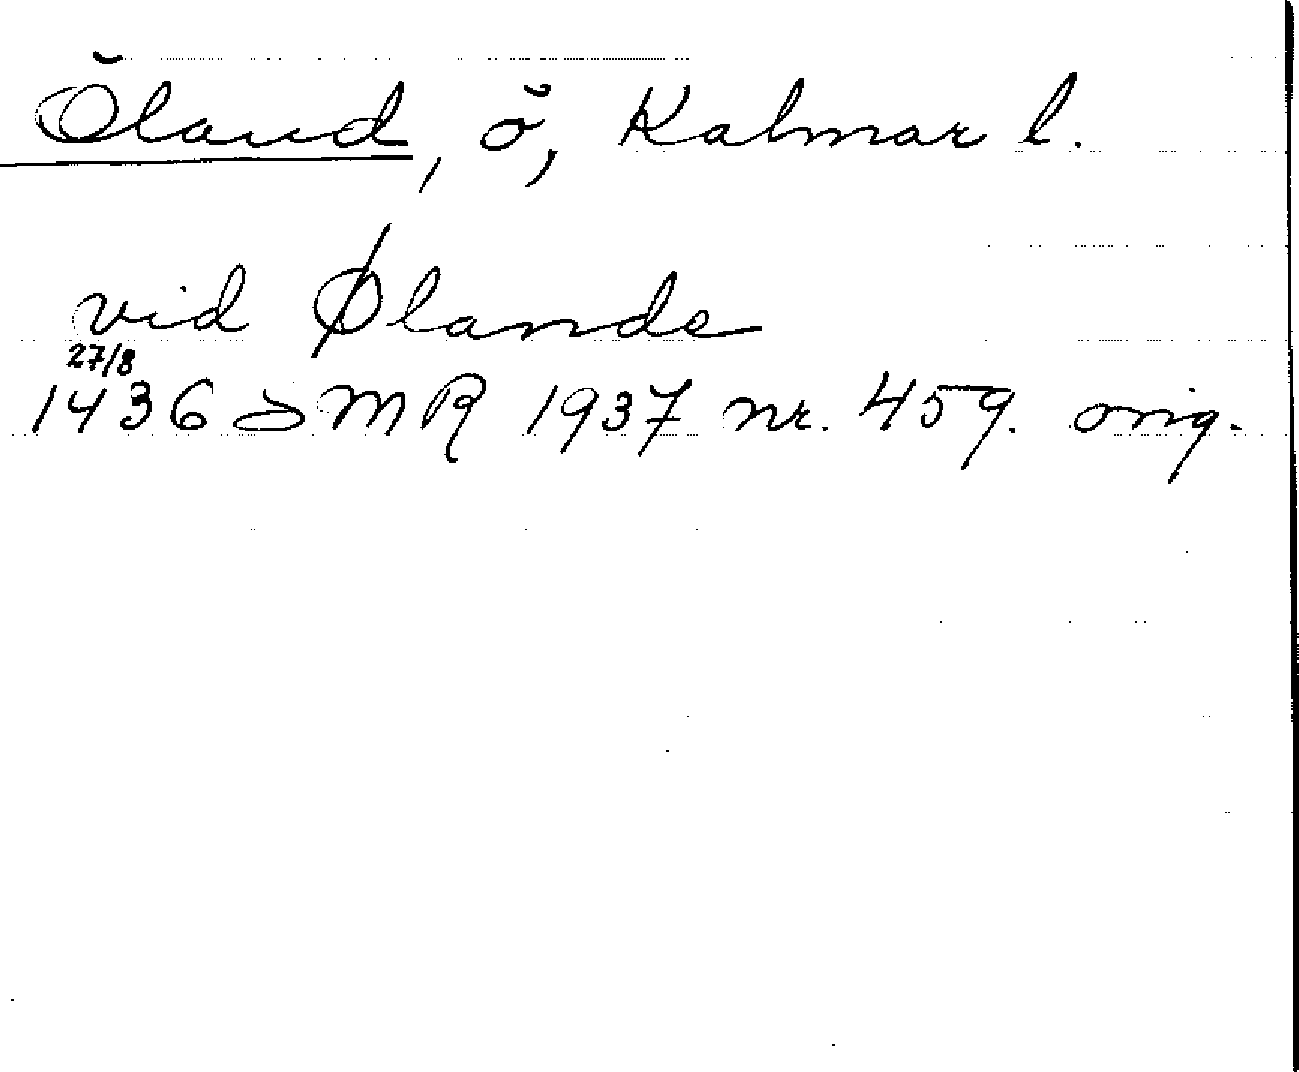 Öland, ö, Kalmar l.
vid Ølande
27/8
1436 SMR 1937 nr. 459. orig.